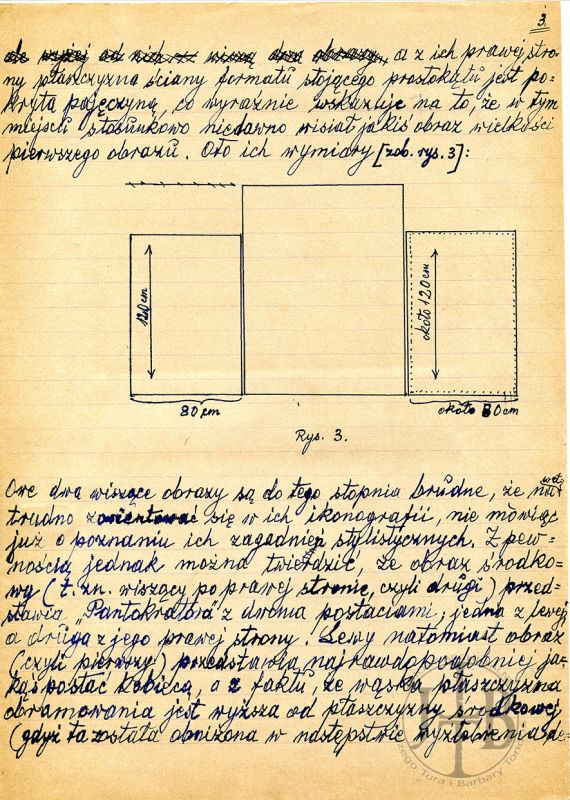 3.
ale wyżej od nich są wiszą dwa obrazy, a z ich prawej stro-
ny płaszczyzna ściany formatu stojącego prostokątu jest po-
kryta pajęczyną, co wyraźnie wskazuje na to, że w tym
miejscu stosunkowo niedawno wisiał jakiś obraz wielkości
pierwszego obrazu. Oto ich wymiary [zob. rys. 3]:
120 cm
około 120 cm
80 cm
około 80 cm
Rys. 3.
Owe dwa wiszące obrazy są do tego stopnia brudne, że nawet
trudno zorientować się w ich ikonografii, nie mówiąc
już o poznaniu ich zagadnień stylistycznych. Z pew-
nością jednak można twierdzić, że obraz środko-
wy (t. zn. wiszący po prawej stronie, czyli drugi) przed-
stawia „Pantokratora" z dwoma postaciami; jedna z lewej
a druga z jego prawej strony. Lewy natomiast obraz
(czyli pierwszy) przedstawia najprawdopodobniej ja-
kąś postać kobiecą, a z faktu, że wąska płaszczyzna
obramowania jest wyższa od płaszczyzny środkowej
(gdyż ta została obniżona w następstwie wyżłobienia de-
JTB
Jerzego Tura i Barbary Tondos